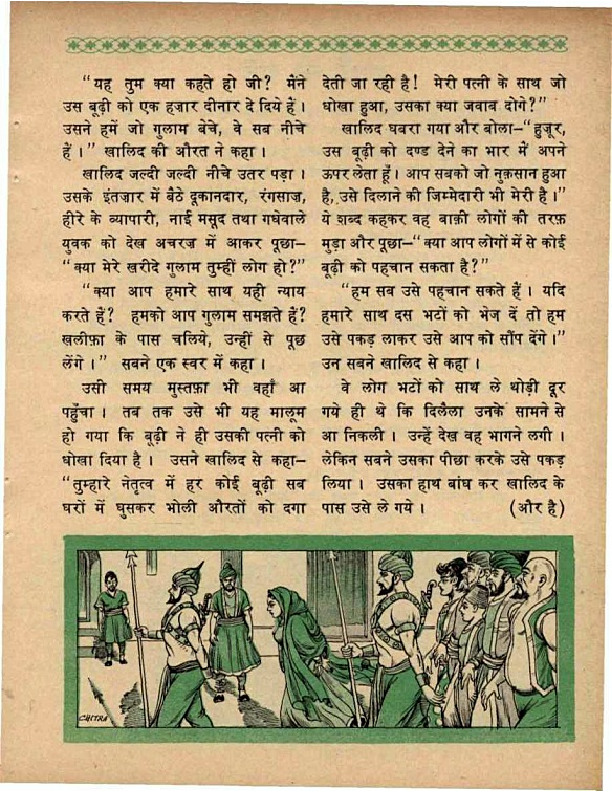 “यह तुम क्या कहते हो जी? मैंने
उस बूढ़ी को एक हज़ार दीनार दे दिये हैं।
उसने हमें जो गुलाम बेचे, वे सब नीचे
हैं।” खालिद की औरत ने कहा।
खालिद जल्दी जल्दी नीचे उतर पड़ा।
उसके इंतज़ार में बैठे दूकानदार, रंगसाज़,
हीरे के व्यापारी, नाई मसूद तथा गधेवाले
युवक को देख अचरज में आकर पूछा–
“क्या मेरे खरीदे गुलाम तुम्हीं लोग हो?”
“क्या आप हमारे साथ यही न्याय
करते हैं? हमको आप गुलाम समझते हैं?
खलीफ़ा के पास चलिये, उन्हीं से पूछ
लेंगे।” सबने एक स्वर में कहा।
उसी समय मुस्तफ़ा भी वहाँ आ
पहुँचा। तब तक उसे भी यह मालूम
हो गया कि बूढ़ी ने ही उसकी पत्नी को
धोखा दिया है। उसने खालिद से कहा–
“तुम्हारे नेतृत्व में हर कोई बूढ़ी सब
घरों में घुसकर भोली औरतों को दगा
देती जा रही है! मेरी पत्नी के साथ जो
धोखा हुआ, उसका क्या जवाब दोगे?”
खालिद घबरा गया और बोला–“हुज़ूर,
उस बूढ़ी को दण्ड देने का भार में अपने
ऊपर लेता हूँ। आप सबको जो नुक़सान हुआ
है, उसे दिलाने की जिम्मेदारी भी मेरी है।”
ये शब्द कहकर वह बाक़ी लोगों की तरफ़
मुड़ा और पूछा–“क्या आप लोगों में से कोई
बूढ़ी को पहचान सकता है?”
“हम सब उसे पहचान सकते हैं। यदि
हमारे साथ दस भटों को भेज दें तो हम
उसे पकड़ लाकर उसे आप को सौंप देंगे।”
उन सबने खालिद से कहा।
वे लोग भटों को साथ ले थोड़ी दूर
गये ही थे कि दिलैला उनके सामने से
आ निकली। उन्हें देख वह भागने लगी।
लेकिन सबने उसका पीछा करके उसे पकड़
लिया। उसका हाथ बांध कर खालिद के
पास उसे ले गये। (और है)
CHITRA